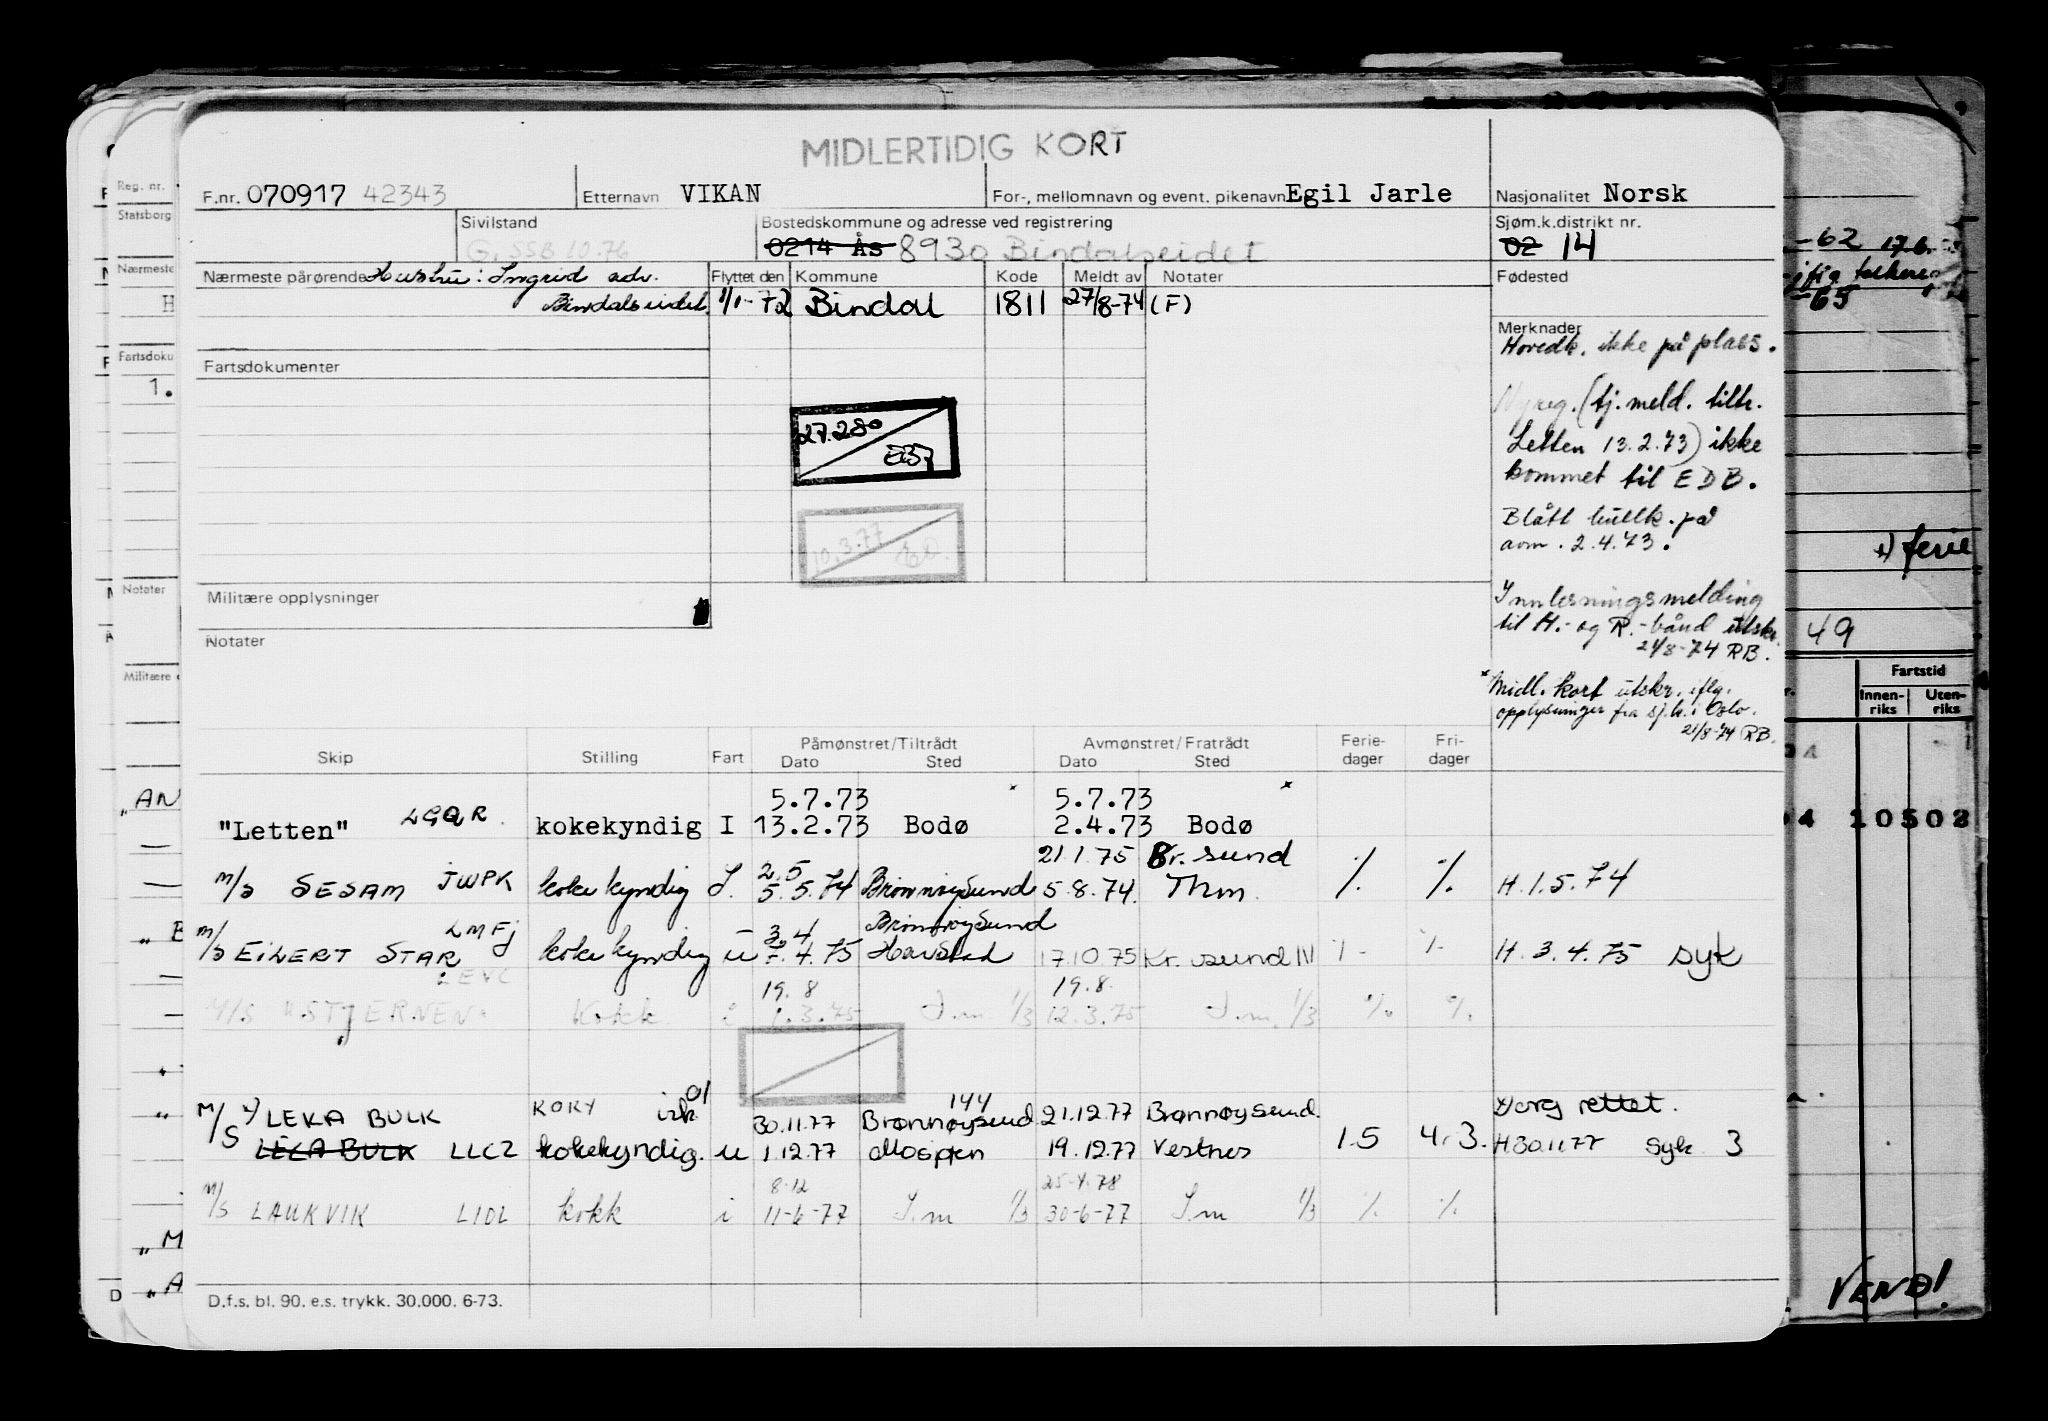 MIDLERTIDIG KORT
F.nr. 070917 42343 Etternavn VIKAN For-, mellomnavn og event. pikenavn Egil Jarle Nasjonalitet Norsk
Sivilstand G. SSB 10.76 Bostedskommune og adresse ved registrering Sjøm.k.distrikt nr.
0214 Ås 8930 Bindalseidet 02 14
Nærmeste pårørende Hustru: Ingrid adr. Flyttet den Kommune Kode Meldt av Notater Fødested
Bindalseidet 1/1-72 Bindal 1811 27/8-74 (F)
Merknader
Hovedk. ikke på plass.
Fartsdokumenter
Nyreg. (tj.meld. tiltr.
Letten 13.2.73) ikke
kommet til EDB.
27.280
Blått hullk. på
avm. 2.4.73.
10.3.77
Militære opplysninger
Innlesningsmelding
til H.- og R.-bånd utskr.
21/8-74 RB.
Notater
Midl. kort utskr. iflg.
opplysninger fra sj.k. i Oslo.
21/8-74 RB.
Skip Stilling Fart Påmønstret/Tiltrådt Dato Sted Avmønstret/Fratrådt Dato Sted Ferie-dager Fri-dager
5.7.73 5.7.73
"Letten" LGQR. kokekyndig I 13.2.73 Bodø 2.4.73 Bodø
2.5 21.1.75 Br.sund
M/S SESAM JWPK kokekyndig I. 5.5.74 Brønnøysund 5.8.74. Thm. % % H.1.5.74
LMFJ 3.4 Brønnøysund
M/S EILERT STAR kokekyndig u .4.75 Havstad 17.10.75 Kr.sund N % % H.3.4.75 syk
LEVC 19.8 19.8.
M/S "STJERNEN" Kokk i 1.3.75 S.m. 1/3 12.3.75 S.m. 1/3 % %
01 144
M/S x) LEKA BULK KOKY 30.11.77 Brønnøysund 21.12.77 Brønnøysund x) org rettet.
LEKA BULK LLCZ kokekyndig. u 1.12.77 Mosjøen 19.12.77 Vestnes 1.5 4.3. H30.11.77 syk 3
8.12 25-4.78
M/S LAUKVIK LIDL kokk i 11-6-77 S.m 1/3 30-6-77 S.m 1/3 % %
D.f.s. bl. 90. e.s. trykk. 30.000. 6-73.
Reg. nr.
Statsborg
Nærmeste
H
Fartsdoku
1.
Notater
Militære
„AN
„ B
„ M
„ A
D
-62 17.6.
-65
x) ferie
49
Fartstid
Innen-riks Uten-riks
10502
VEND!